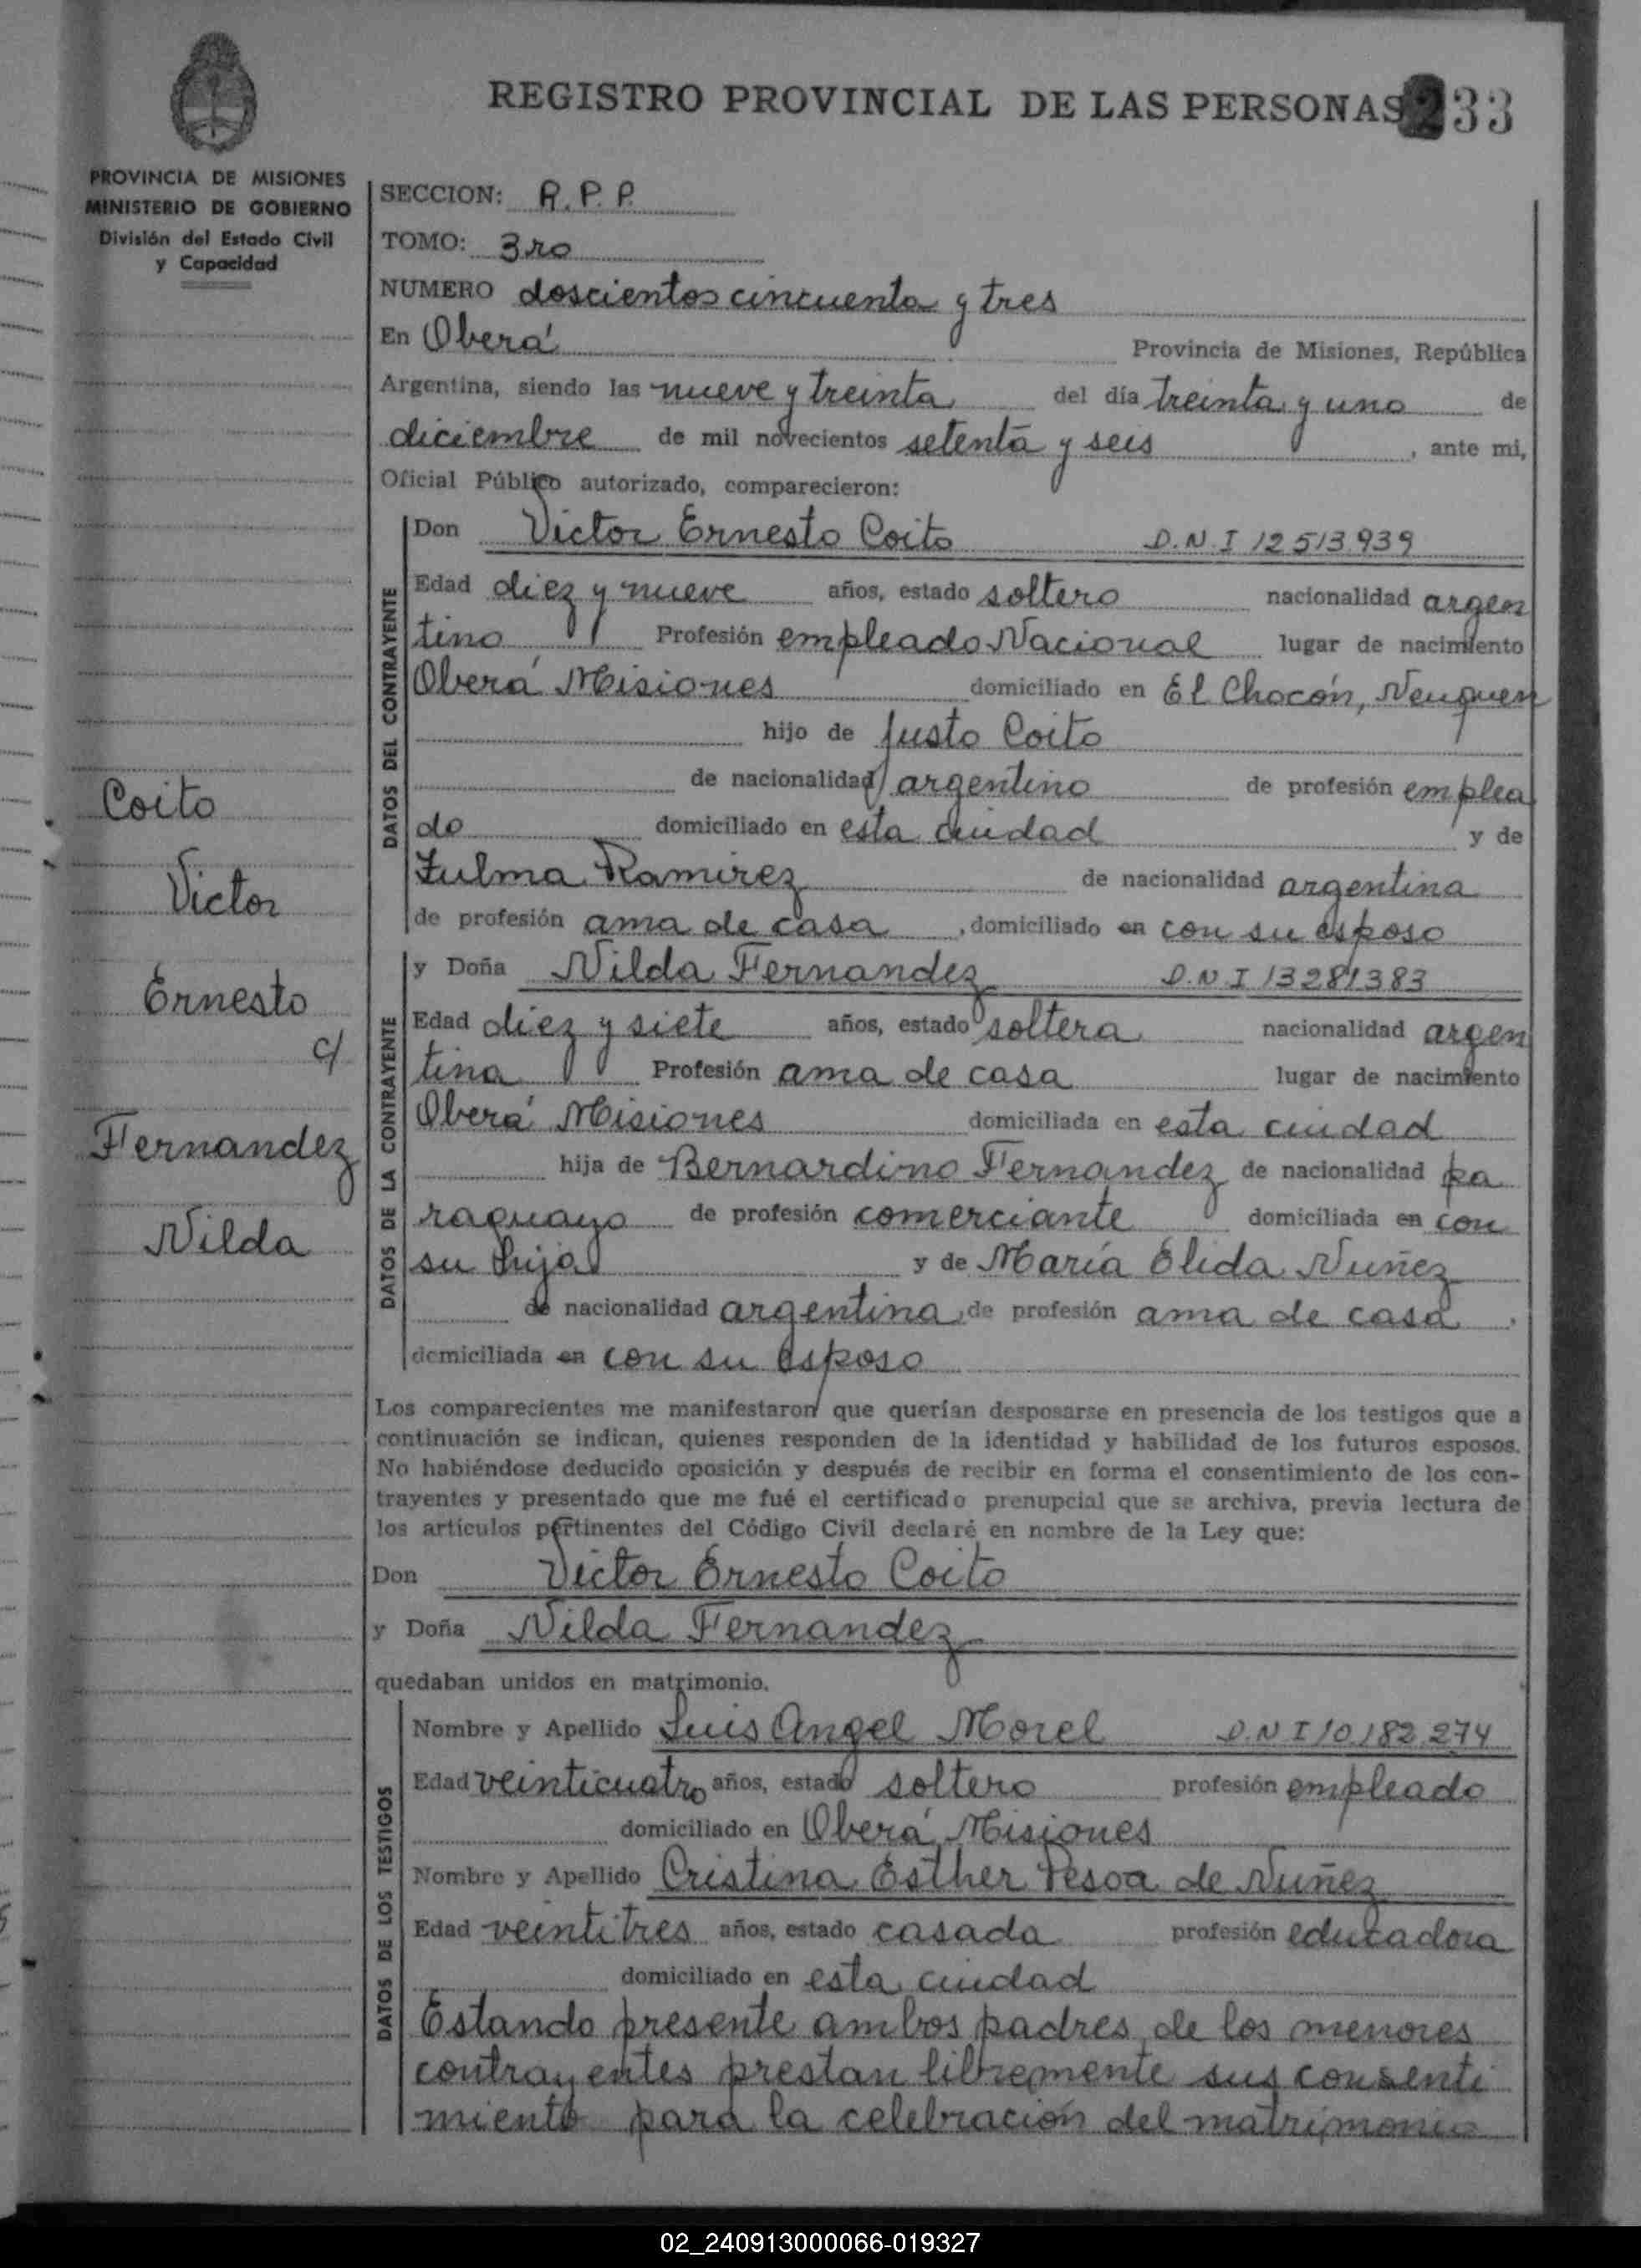 REGISTRO PROVINCIAL DE LAS PERSONAS 233
PROVINCIA DE MISIONES
MINISTERIO DE GOBIERNO
División del Estado Civil
y Capacidad
Coito
Victor
Ernesto
c/
Fernandez
Nilda
SECCION: R.P.P.
TOMO: 3ro
NUMERO doscientos cincuenta y tres
En Oberá Provincia de Misiones, República
Argentina, siendo las nueve y treinta del día treinta y uno de
diciembre de mil novecientos setenta y seis, ante mi,
Oficial Público autorizado, comparecieron:
DATOS DEL CONTRAYENTE
Don Victor Ernesto Coito D.N.I 12.513.939
Edad diez y nueve años, estado soltero nacionalidad argen
tino Profesión empleado Nacional lugar de nacimiento
Oberá Misiones domiciliado en El Chocón, Neuquen
hijo de Justo Coito
de nacionalidad argentino de profesión emplea
do domiciliado en esta ciudad y de
Zulma Ramirez de nacionalidad argentina
de profesión ama de casa, domiciliado en con su esposo
DATOS DE LA CONTRAYENTE
y Doña Nilda Fernandez D.N.I 13281383
Edad diez y siete años, estado soltera nacionalidad argen
tina Profesión ama de casa lugar de nacimiento
Oberá Misiones domiciliada en esta ciudad
hija de Bernardino Fernandez de nacionalidad pa
raguayo de profesión comerciante domiciliada en con
su hija y de María Elida Nuñez
de nacionalidad argentina, de profesión ama de casa,
domiciliada en con su esposo
Los comparecientes me manifestaron que querían desposarse en presencia de los testigos que a
continuación se indican, quienes responden de la identidad y habilidad de los futuros esposos.
No habiéndose deducido oposición y después de recibir en forma el consentimiento de los con-
trayentes y presentado que me fué el certificado prenupcial que se archiva, previa lectura de
los artículos pertinentes del Código Civil declaré en nombre de la Ley que:
Don Victor Ernesto Coito
y Doña Nilda Fernandez
quedaban unidos en matrimonio.
DATOS DE LOS TESTIGOS
Nombre y Apellido Luis Angel Morel D.N.I 10.182.274
Edad veinticuatro años, estado soltero profesión empleado
domiciliado en Oberá, Misiones
Nombre y Apellido Cristina Esther Pesoa de Nuñez
Edad veintitres años, estado casada profesión educadora
domiciliado en esta ciudad
Estando presente ambos padres de los menores
contrayentes prestan libremente sus consenti
miento para la celebración del matrimonio
02_240913000066-019327